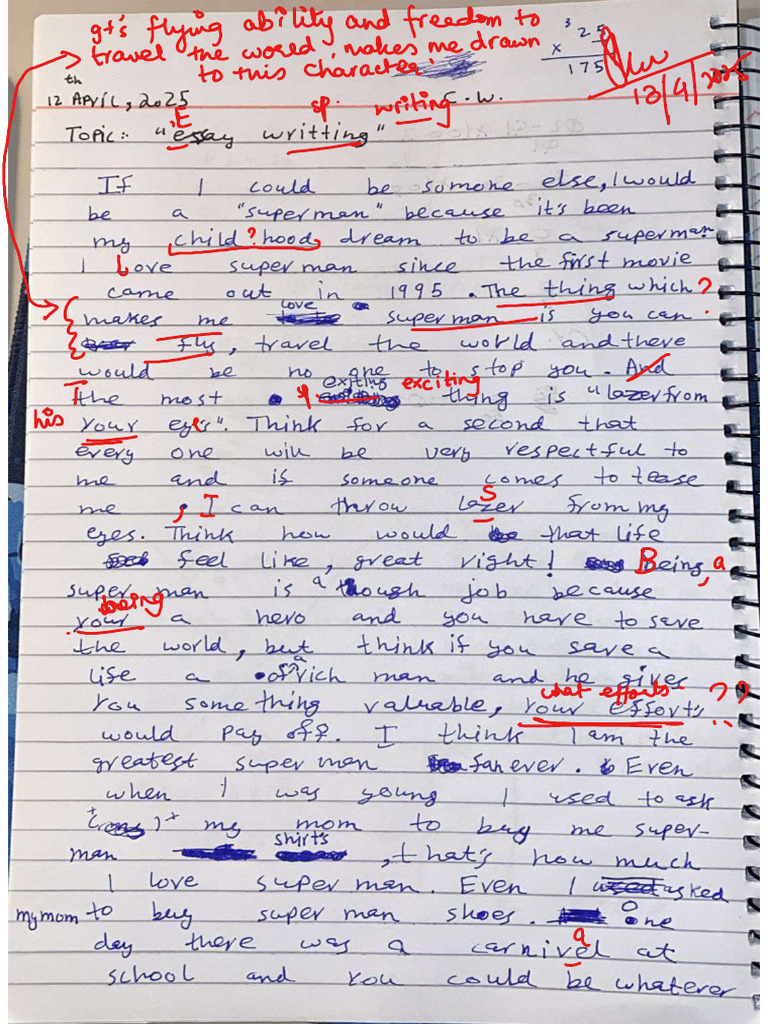 It's flying ability and freedom to
travel the world, makes me drawn
to this character.
3
25
x
175
12/4/2025
12th April, 2025
sp. writing C.W.
E
Topic:- "essay writting"
If I could be somone else, I would
be a "superman" because it's been
my child?hood, dream to be a superman
I Love super man since the first movie
came out in 1995. The thing which?
love
makes me superman is you can.
fly, travel the world and there
would be no one to stop you. And
exiting exciting
the most sp thing is "lazer from
his your eyes". Think for a second that
every one will be very respectful to
me and if someone comes to tease
s
me, I can throw lazer from my
eyes. Think how would that life
feel like, great right! Being, a
super man is a though job because
being
your a hero and you have to save
the world, but think if you save a
life a of a rich man and he gives
what efforts ??
you something valuable, your efforts
would pay off. I think I am the
greatest super man fan ever. Even
when I was young I used to ask
my mom to buy me super-
shirts
man , that's how much
I love super man. Even I asked
my mom to buy super man shoes. One
a
day there was a carnivel at
school and you could be whatever